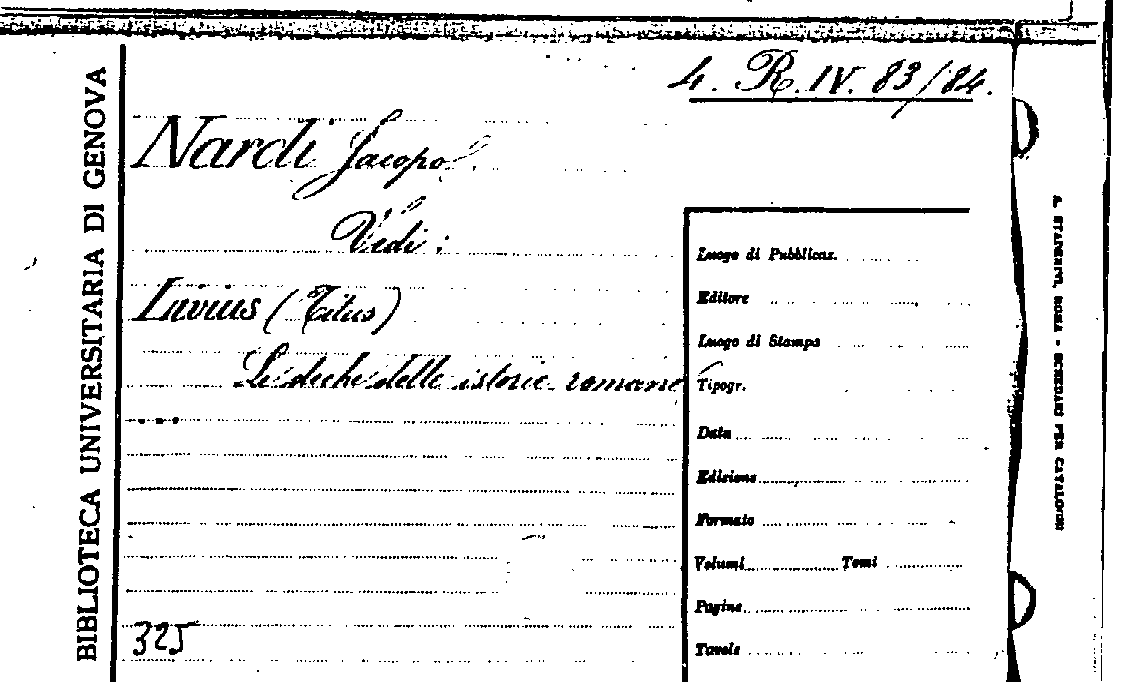 BIBLIOTECA UNIVERSITARIA DI GENOVA
4. R. IV. 83/84.
Nardi Jacopo.
Vedi:
Livius (Titus)
Le deche delle istorie romane
....
325
Luogo di Pubblicaz.
Editore
Luogo di Stampa
Tipogr.
Data
Edizione
Formato
Volumi Tomi
Pagine
Tavole
A. STADERINI, ROMA - SCHEDARI PER CATALOGHI